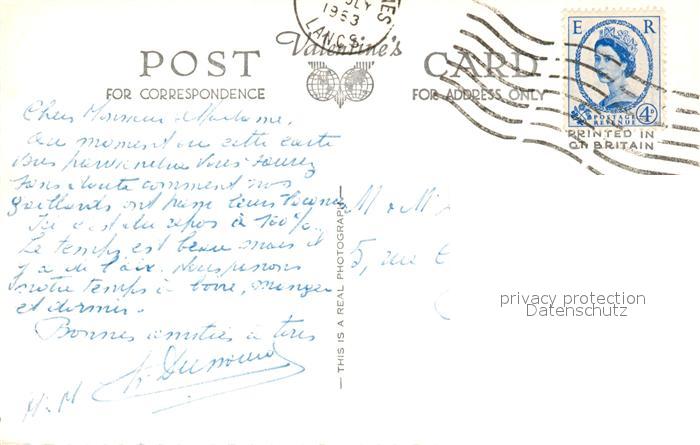 JULY
1953
LANCS
Valentine's
E R
POST CARD
FOR CORRESPONDENCE
FOR ADDRESS ONLY
POSTAGE REVENUE 4D
PRINTED IN
GT BRITAIN
Chers Monsieur & Madame,
Au moment où cette carte
vous parviendra vous saurez
sans doute comment nos
gaillards ont passé leurs vacances
Ici c'est du repos à 100%.
Le temps est beau mais il
y a de l'air. Nous passons
notre temps à boire, manger
et dormir.
Bonnes amitiés à tous
THIS IS A REAL PHOTOGRAPH
M & M
5, rue
privacy protection
Datenschutz